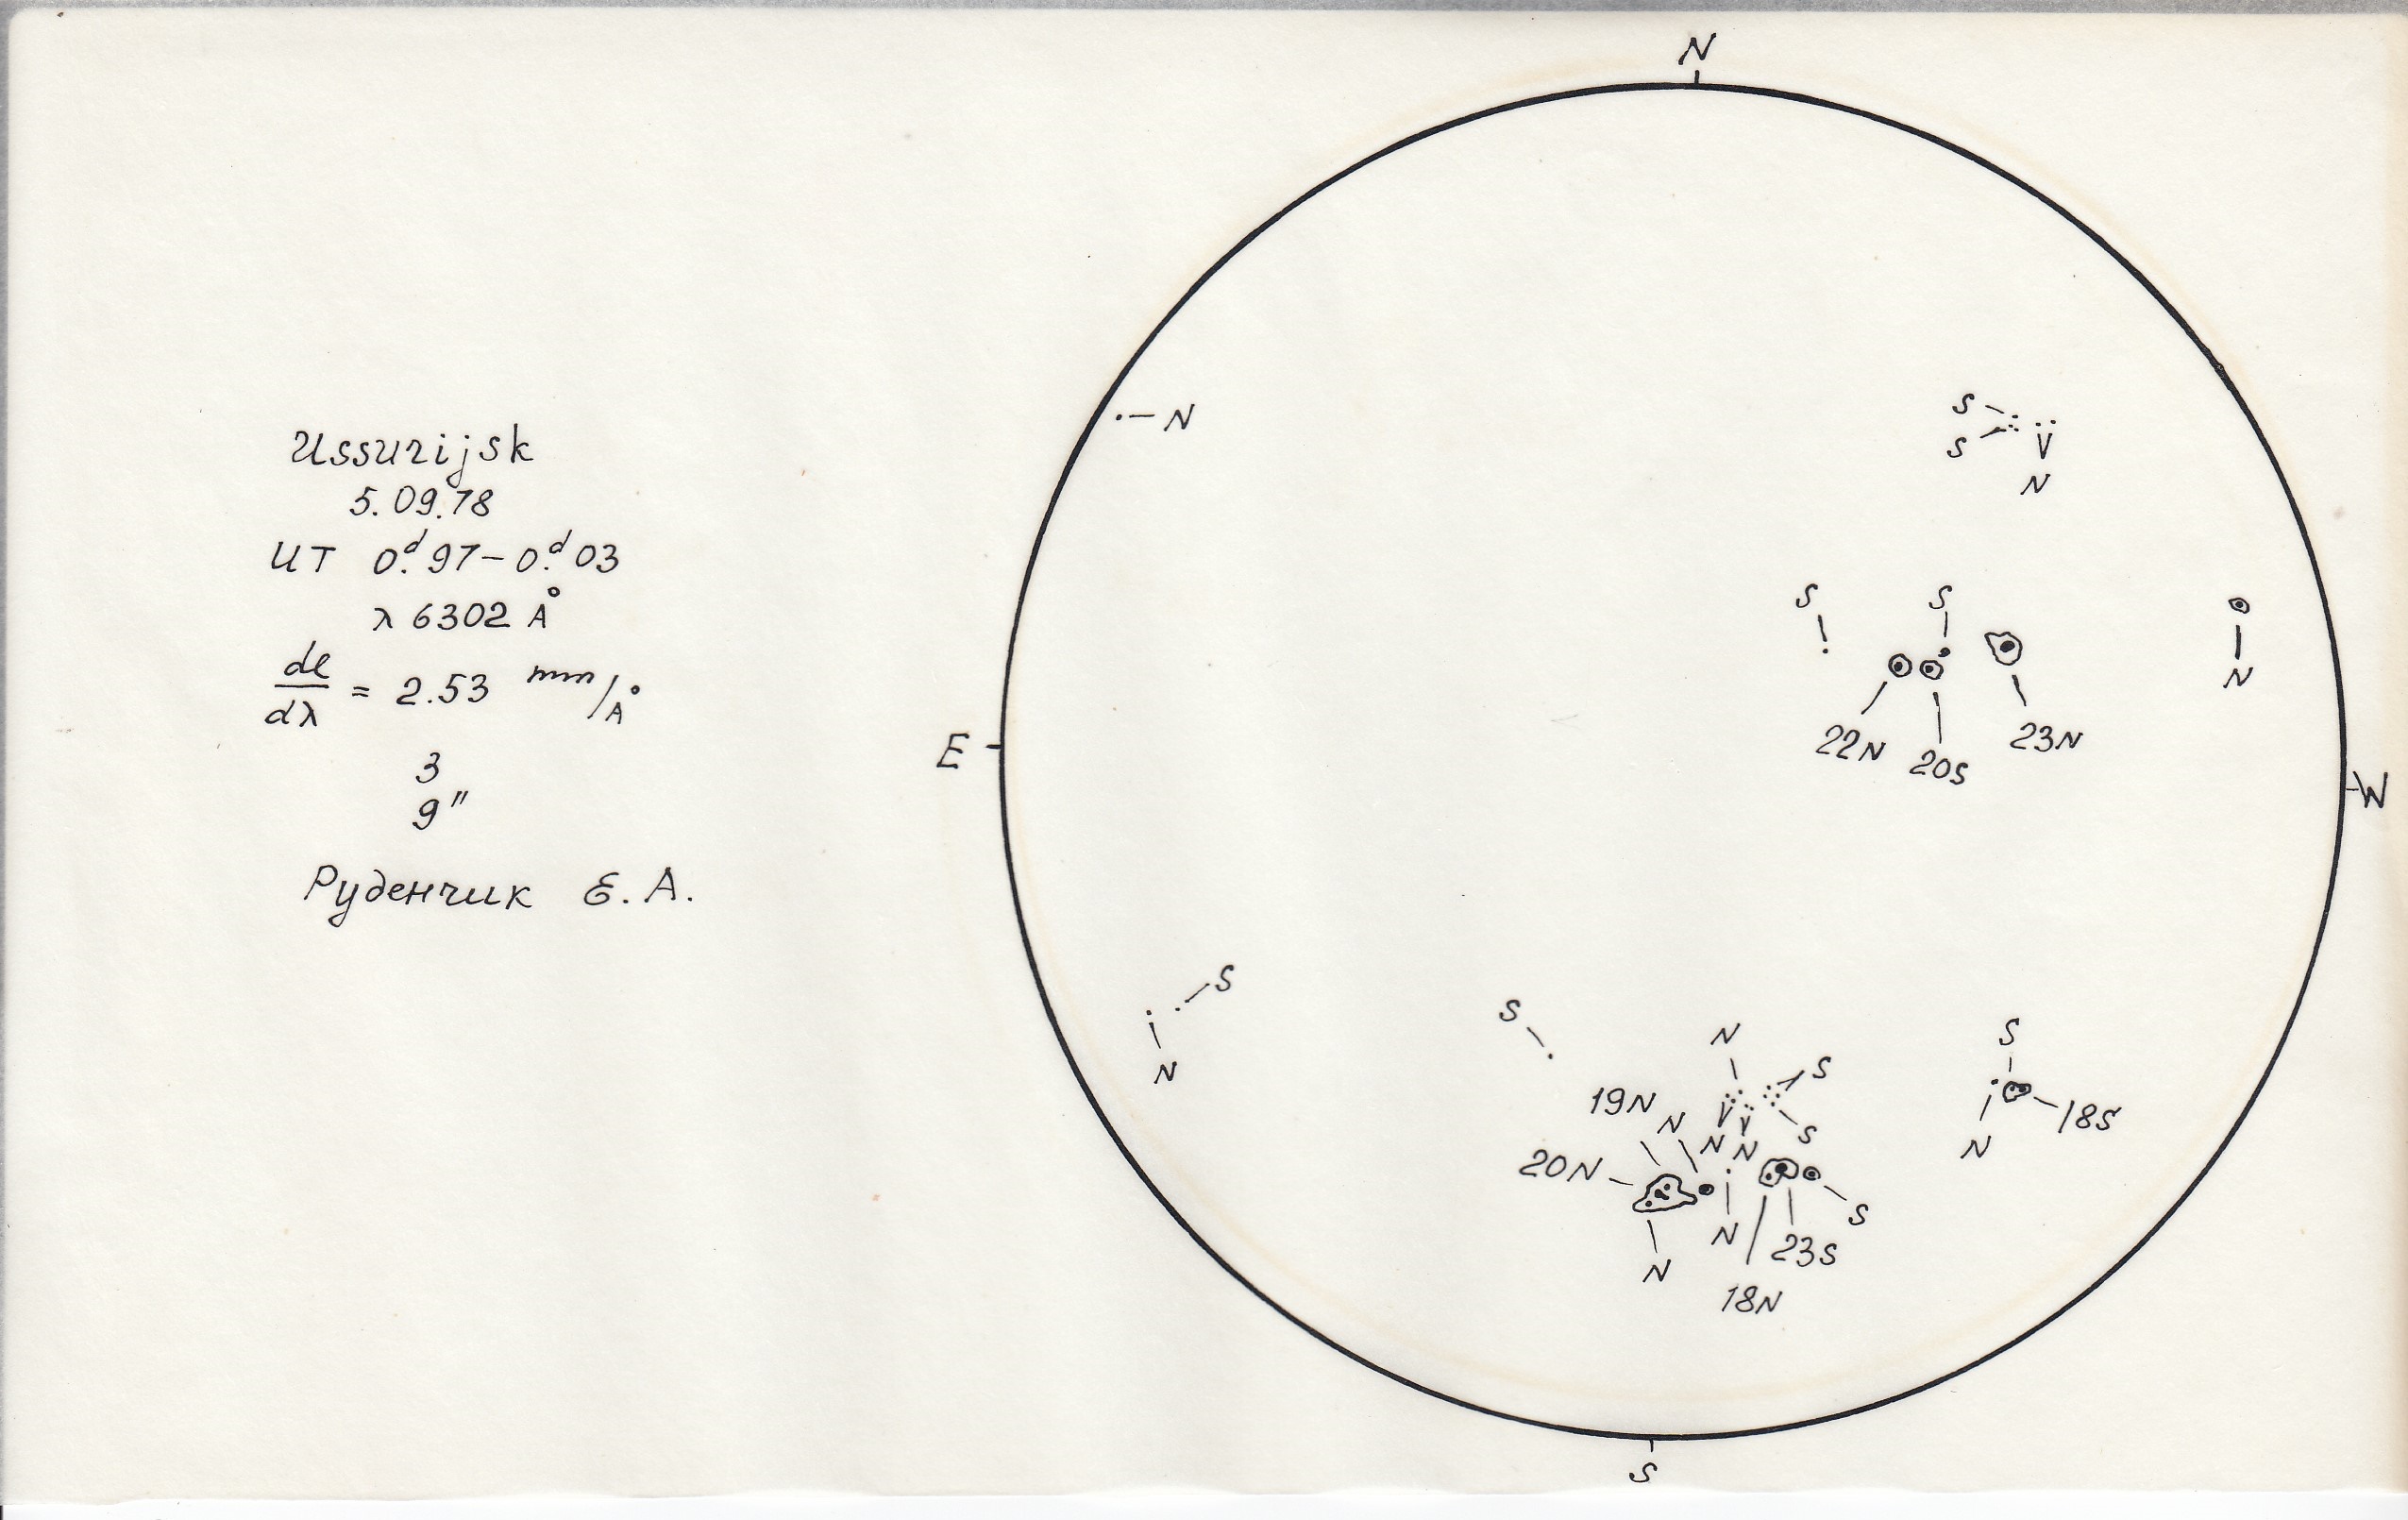 Ussurijsk
5.09.78
UT 0.ᵈ97–0.ᵈ03
λ 6302 Å
dl/dλ = 2.53 mm/Å
3
9"
Руденчик Е. А.
N
N
S
S
V
N
S
S
N
22N
20S
23N
E
W
S
N
S
N
S
S
19N
N
N
N
S
18S
N
20N
N
S
N
23S
18N
S